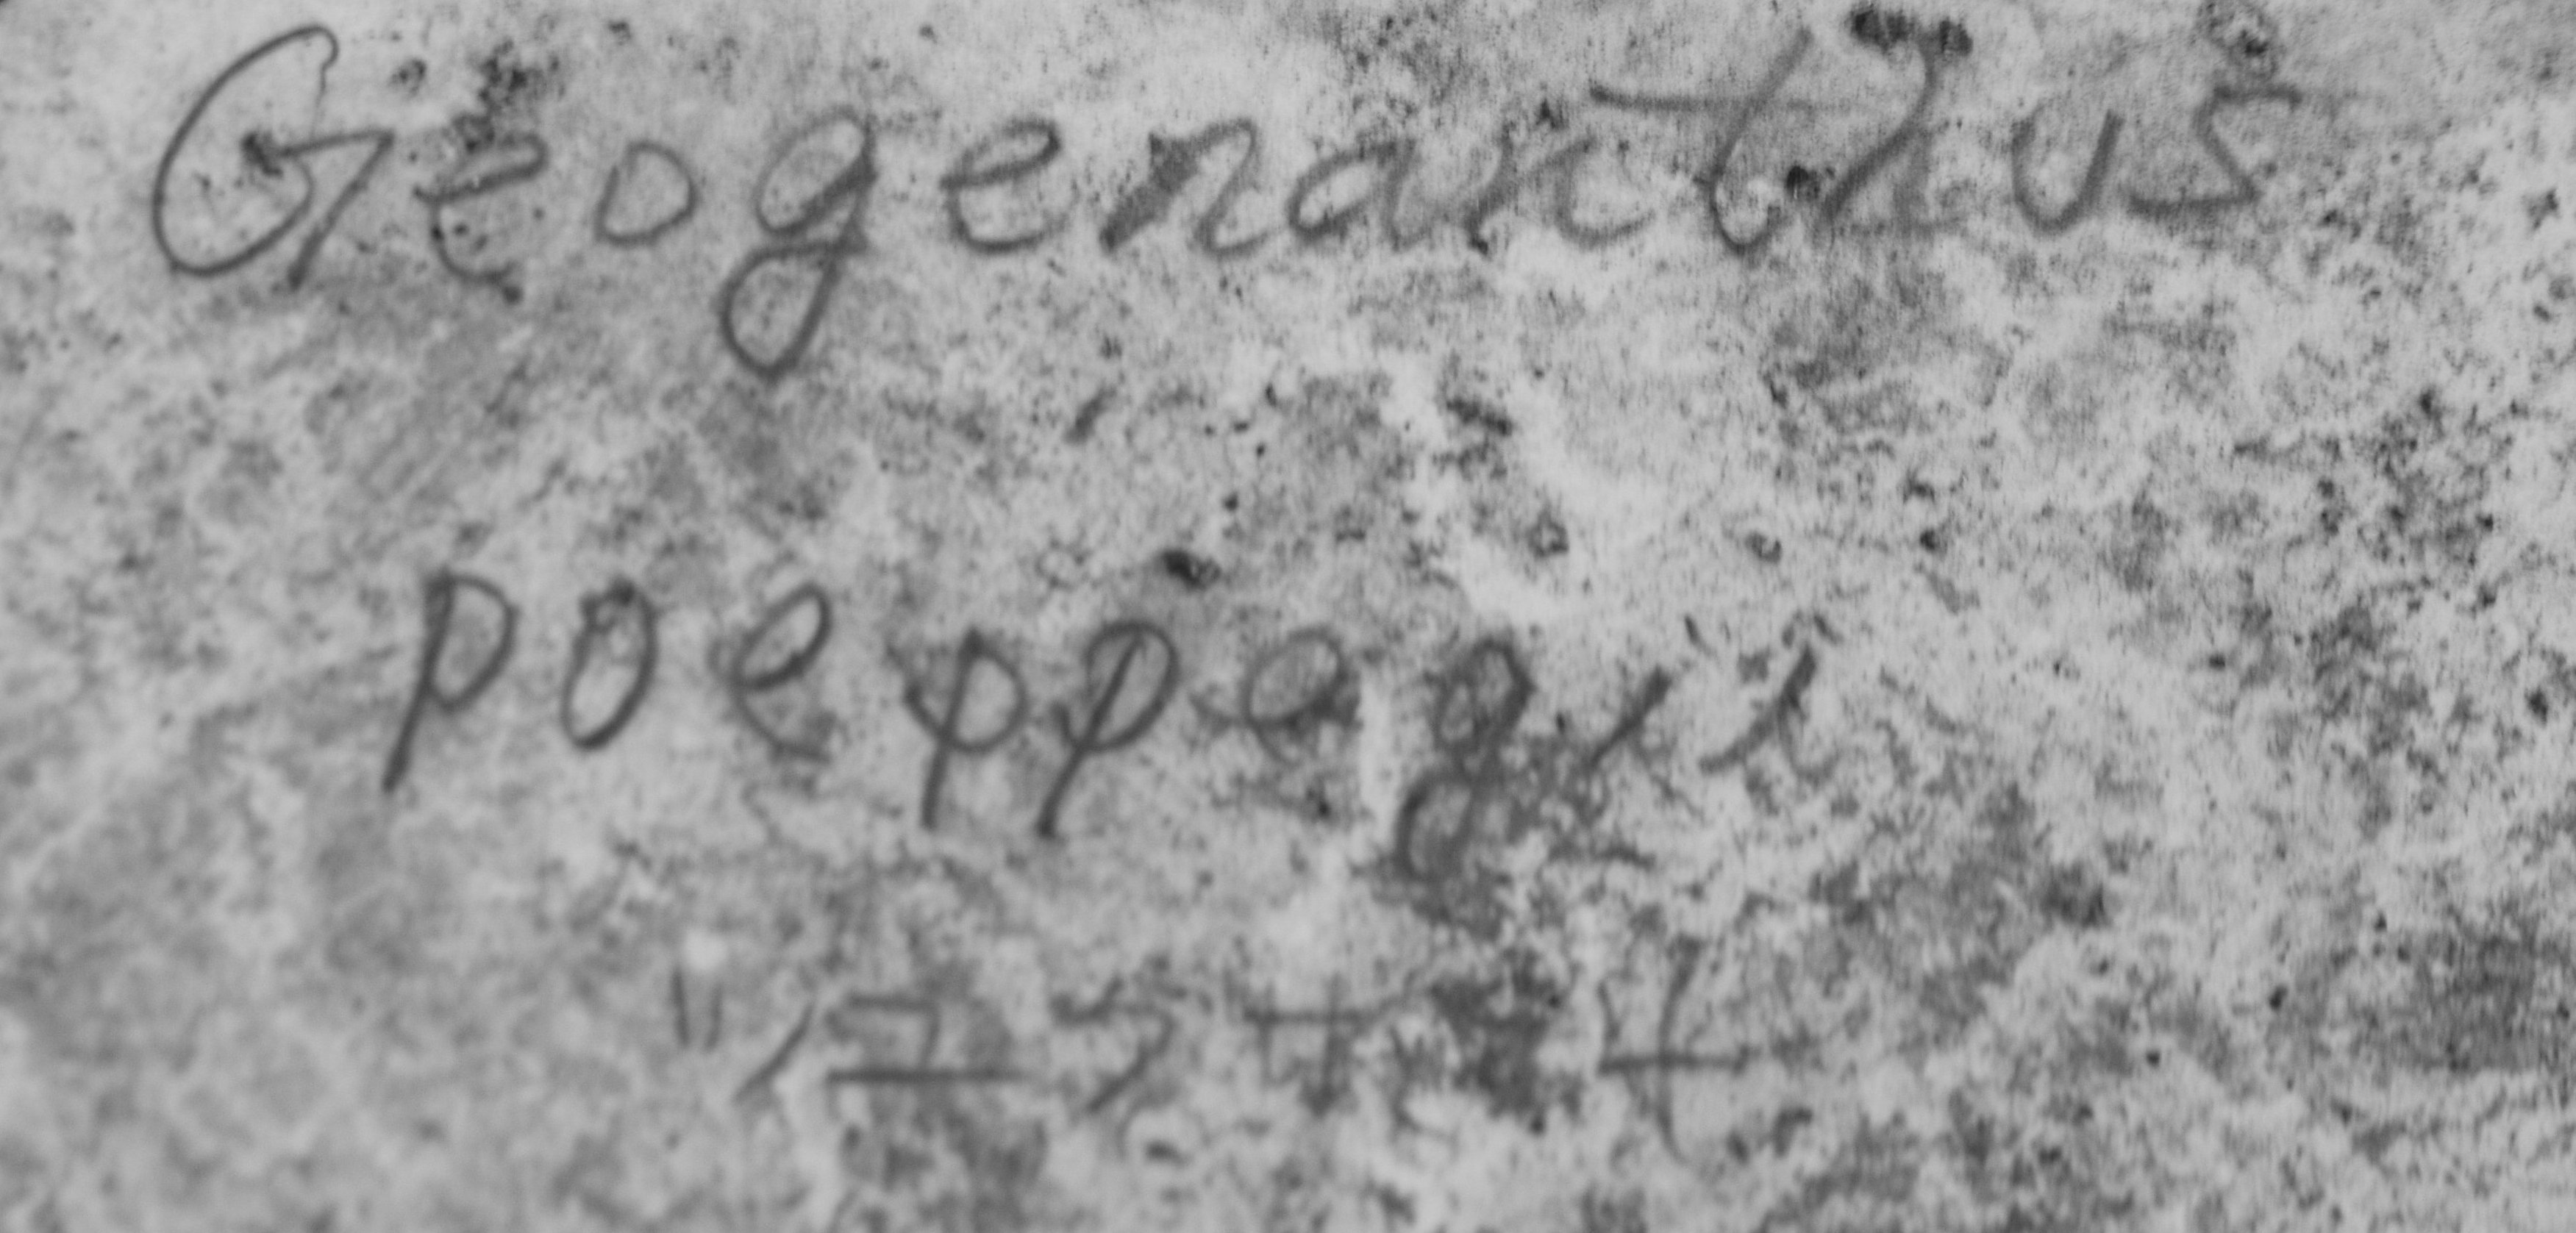 Geogenanthus
poeppegii